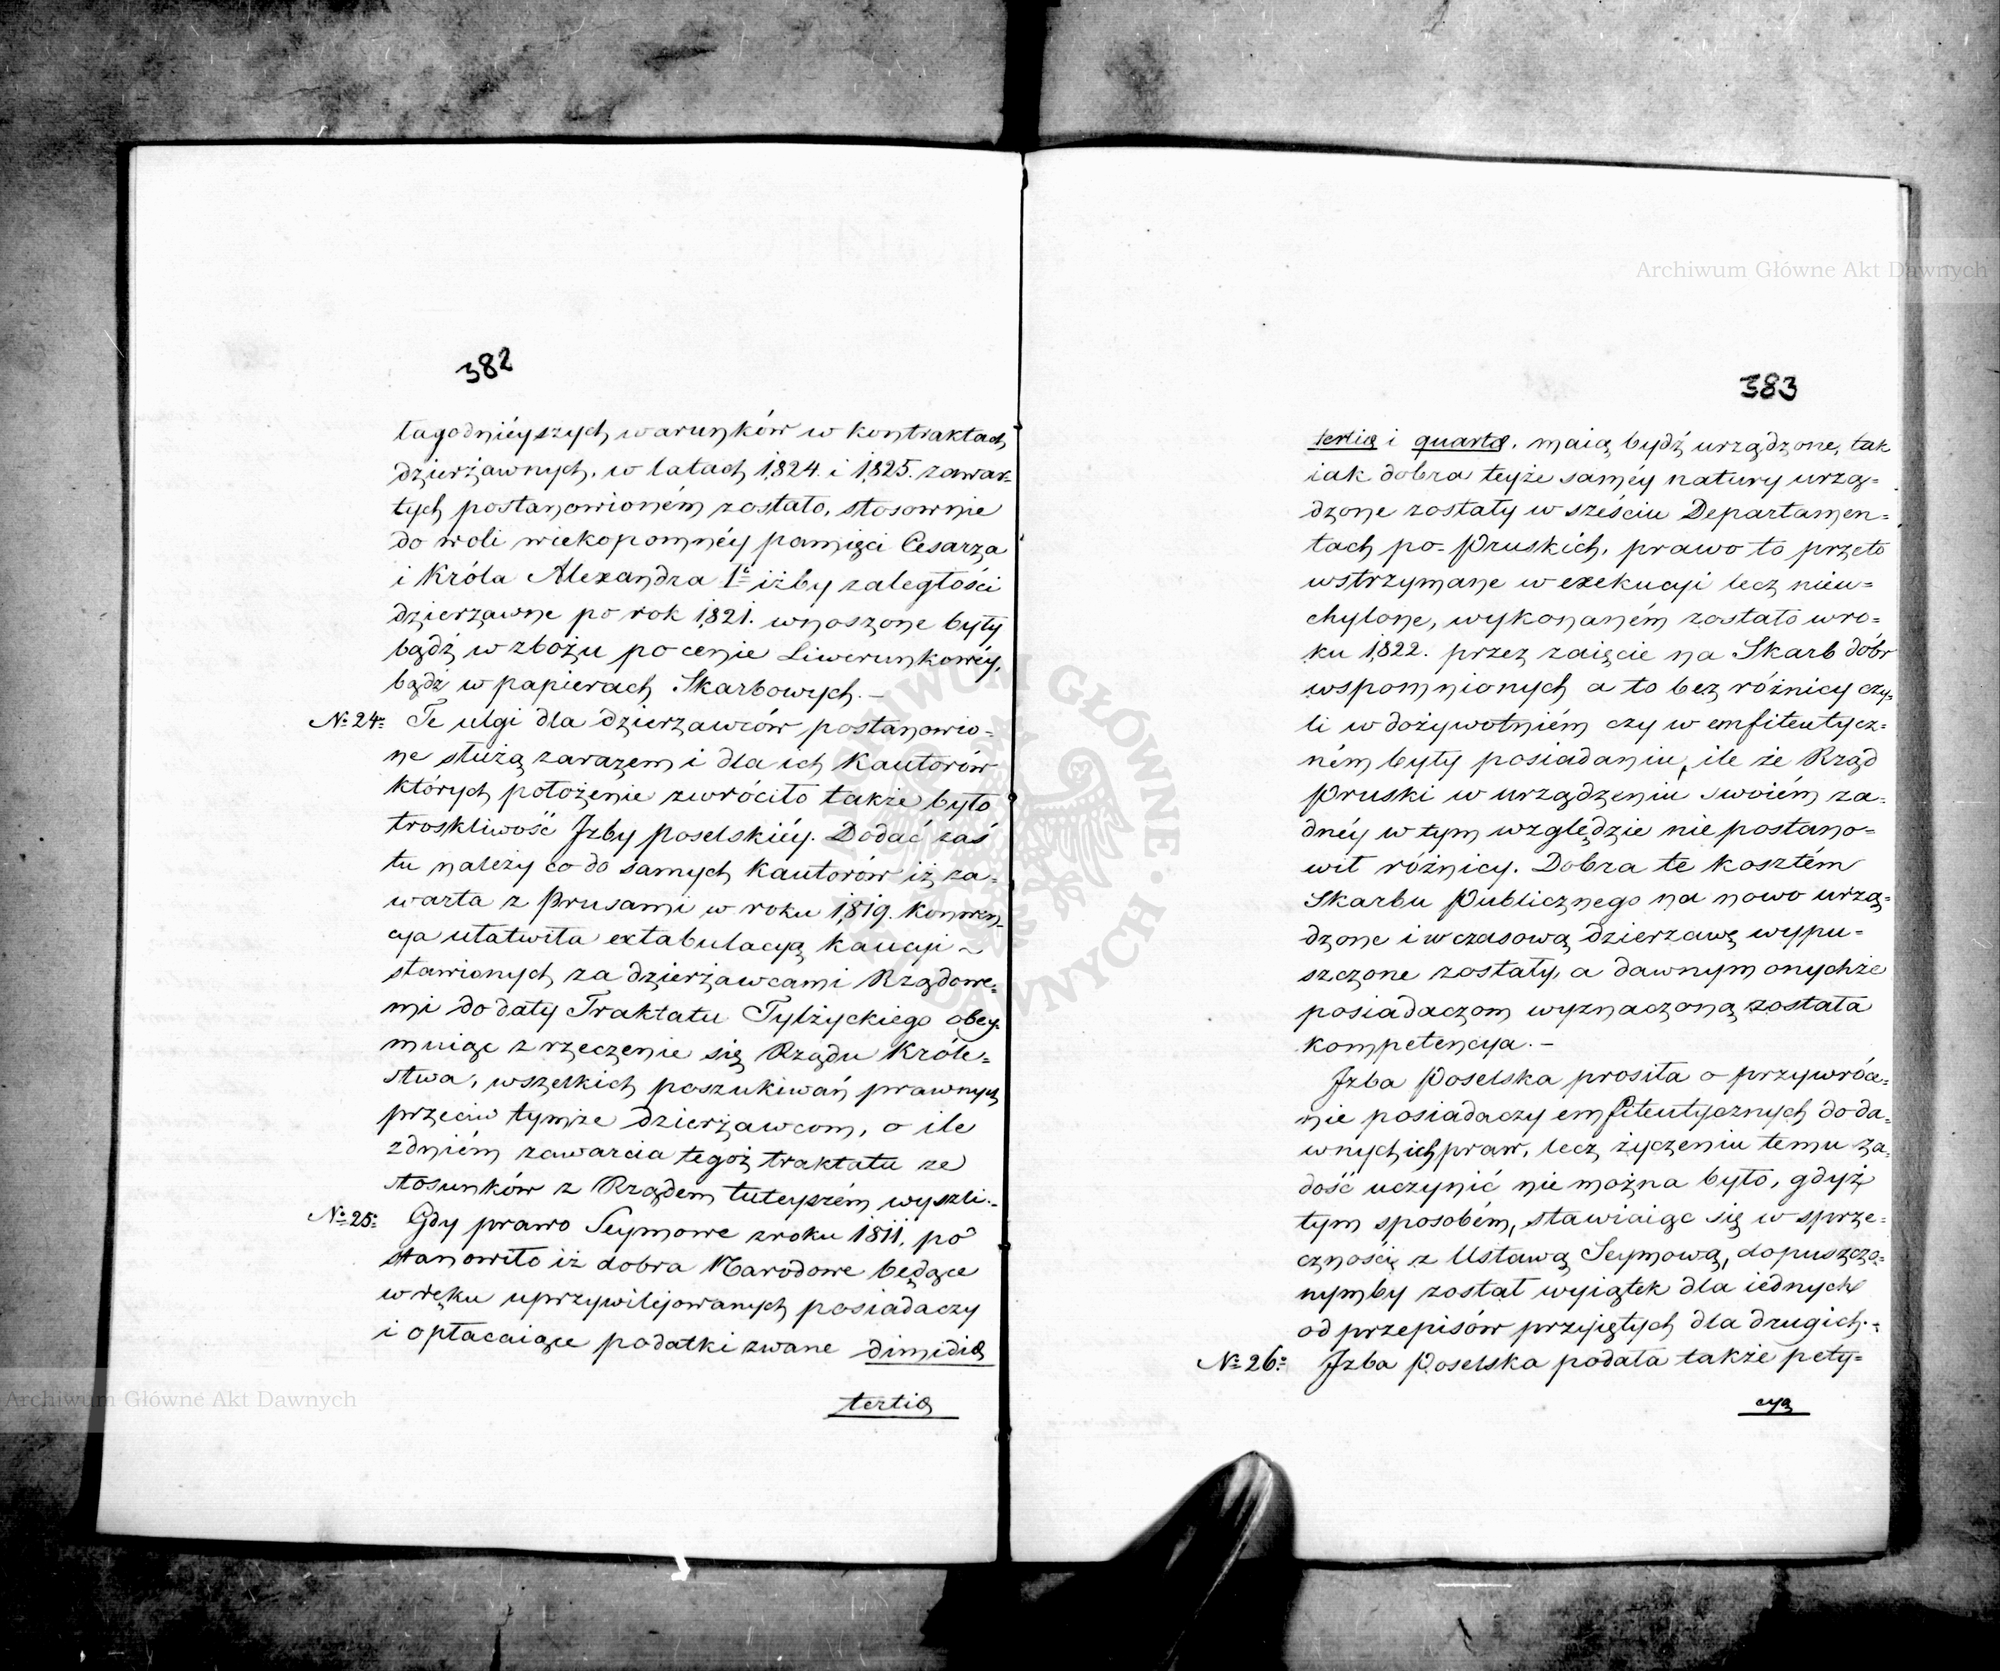 382
łagodniéyszych warunków w kontraktach
dzierżawnych, w latach 1824. i 1825. zawar=
tych postanowioném zostało, stosownie
do woli wiekopomnéy pamięci Cesarza
i Króla Alexandra I. iżby zaległości
dzierżawne po rok 1821. wnoszone były
bądź w zbożu po cenie Liwerunkowéy,
bądź w papierach Skarbowych.–
No 24. Te ulgi dla dzierżawców postanowio=
ne służą zarazem i dla ich Kautorów
których położenie zwróciło także było
troskliwość Jzby Poselskiéy. Dodać zaś
tu należy co do samych Kautorów iż za=
warta z Prusami w roku 1819. Konwen=
cya ułatwiła extabulacyą kaucyi
stawionych za dzierżawcami Rządowe=
mi do daty Traktatu Tylżyckiego obey=
muiąc zrzeczenie się Rządu Króle=
stwa, wszelkich poszukiwań prawnych
przeciw tymże dzierżawcom, o ile
z dniem zawarcia tegoż traktatu ze
stosunków z Rządem tuteyszém wyszli.–
No 25. Gdy prawo Seymowe z roku 1811. po
stanowiło iż dobra Narodowe będące
w ręku uprzywilejowanych posiadaczy
i opłacaiące podatki zwane dimidią
tertią
383
tertią i quartą. maią bydź urządzone, tak
iak dobra teyże saméy natury urzą=
dzone zostały w sześciu Departamen=
tach po=Pruskich, prawo to przeto
wstrzymane w exekucyi lecz nieu=
chylone, wykonaném zostało w ro=
ku 1822. przez zaięcie na Skarb dóbr
wspomnionych a to bez różnicy czy=
li w dożywotniém czy w emfiteutycz=
ném były posiadaniu, ile że Rząd
Pruski w urządzeniu swoiém ża=
dnéy w tym względzie nie postano=
wił różnicy. Dobra te kosztém
Skarbu Publicznego na nowo urzą=
dzone i w czasową dzierżawę wypu=
szczone zostały, a dawnym onychże
posiadaczom wyznaczoną została
kompetencya.–
Jzba Poselska prosiła o przywróce=
nie posiadaczy emfiteutycznych do da=
wnych ich praw, lecz życzeniu temu za=
dość uczynić nie można było, gdyż
tym sposobém, stawiaiąc się w sprze=
czności z Ustawą Seymową, dopuszczo=
nymby został wyiątek dla iednych
od przepisów przyiętych dla drugich.–
No 26. Jzba Poselska podała także pety=
cyą
Archiwum Główne Akt Dawnych
Archiwum Główne Akt Dawnych